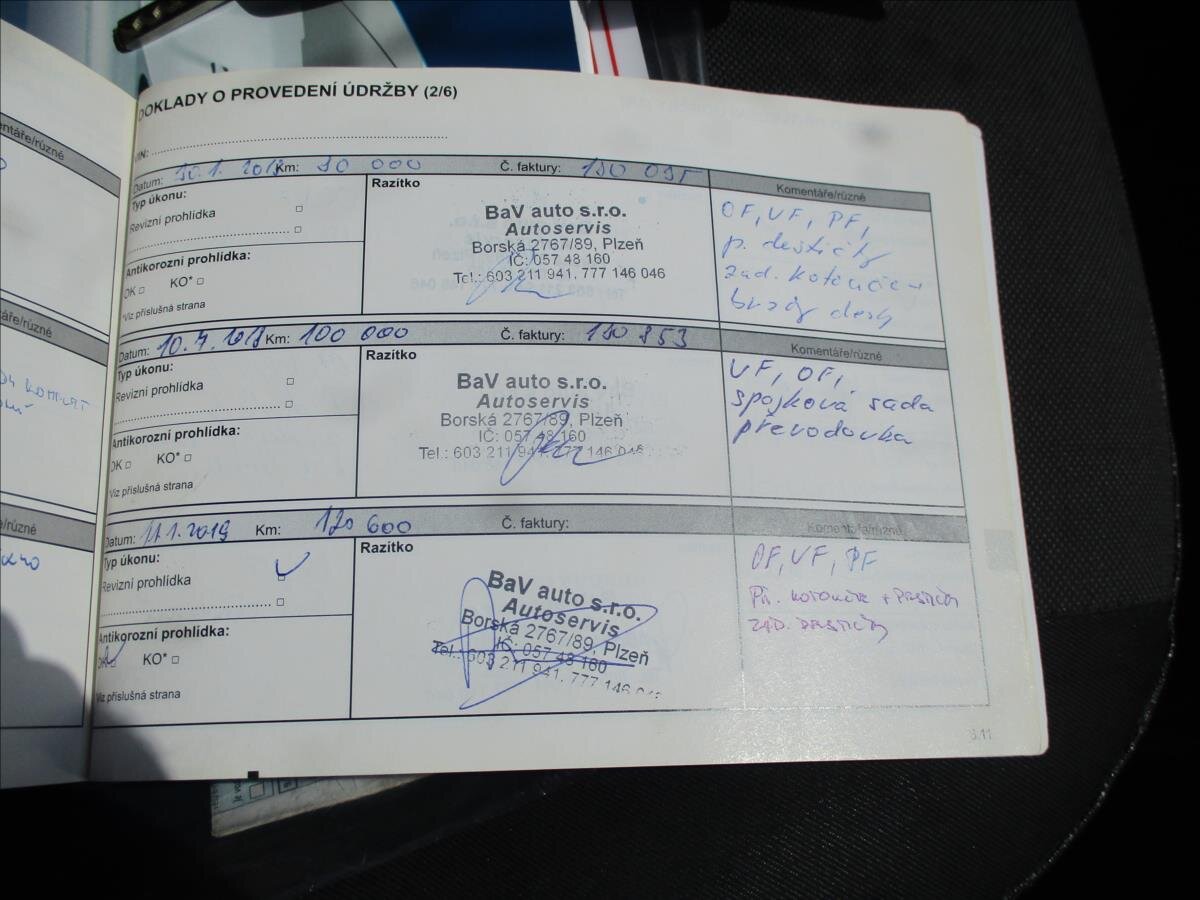 DOKLADY O PROVEDENÍ ÚDRŽBY (2/6)
VIN:
Datum: 30.1.2018 Km: 90 000 Č. faktury: 180 095 Komentáře/různé
Typ úkonu:
Revizní prohlídka
Antikorozní prohlídka:
OK KO*
*Viz příslušná strana
Razítko
BaV auto s.r.o.
Autoservis
Borská 2767/89, Plzeň
IČ: 057 48 160
Tel.: 603 211 941, 777 146 046
OF, VF, PF,
p. destičky
zad. kotouče +
brzdy desky
Datum: 10.7.2018 Km: 100 000 Č. faktury: 180 853 Komentáře/různé
Typ úkonu:
Revizní prohlídka
Antikorozní prohlídka:
OK KO*
*Viz příslušná strana
Razítko
BaV auto s.r.o.
Autoservis
Borská 2767/89, Plzeň
IČ: 057 48 160
Tel.: 603 211 941, 777 146 046
VF, OF,
spojková sada
převodovka
Datum: 11.1.2019 Km: 120 600 Č. faktury: Komentáře/různé
Typ úkonu:
Revizní prohlídka
Antikorozní prohlídka:
OK KO*
Viz příslušná strana
Razítko
BaV auto s.r.o.
Autoservis
Borská 2767/89, Plzeň
IČ: 057 48 160
Tel.: 603 211 941, 777 146 046
OF, VF, PF
PŘ. KOTOUČE + DESTIČKY
ZAD. DESTIČKY
ntáře/různé
áře/různé
/různé